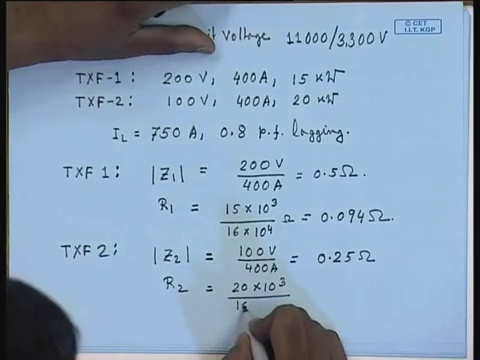 it Voltage 11000/3,300V
© CET
I.I.T. KGP
TXF-1: 200V, 400A, 15 kW
TXF-2: 100V, 400A, 20 kW
I_L = 750 A, 0.8 p.f. lagging.
TXF 1: |Z₁| = 200V / 400A = 0.5Ω.
R₁ = 15 × 10³ / 16 × 10⁴ Ω = 0.094Ω.
TXF 2: |Z₂| = 100V / 400A = 0.25Ω
R₂ = 20 × 10³ / 16